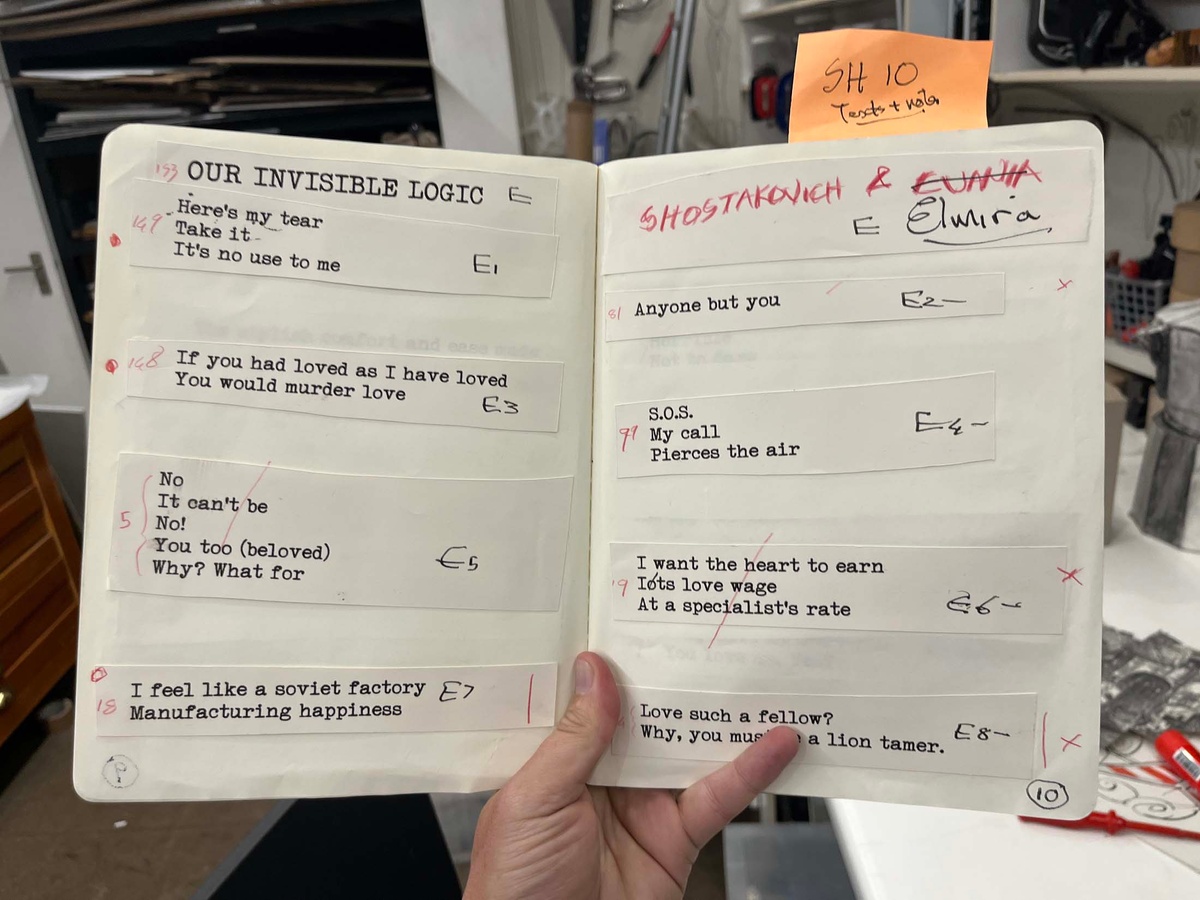 SH 10
Texts + notes
193 OUR INVISIBLE LOGIC E
149 Here's my tear
Take it
It's no use to me E1
148 If you had loved as I have loved
You would murder love E3
No
It can't be
5 No!
You too (beloved)
Why? What for E5
I feel like a soviet factory E7
18 Manufacturing happiness
SHOSTAKOVICH &
E Elmira
81 Anyone but you E2- x
S.O.S.
99 My call E4-
Pierces the air
I want the heart to earn x
19 Iots love wage
At a specialist's rate E6-
Love such a fellow? E8-
Why, you a lion tamer. x
10